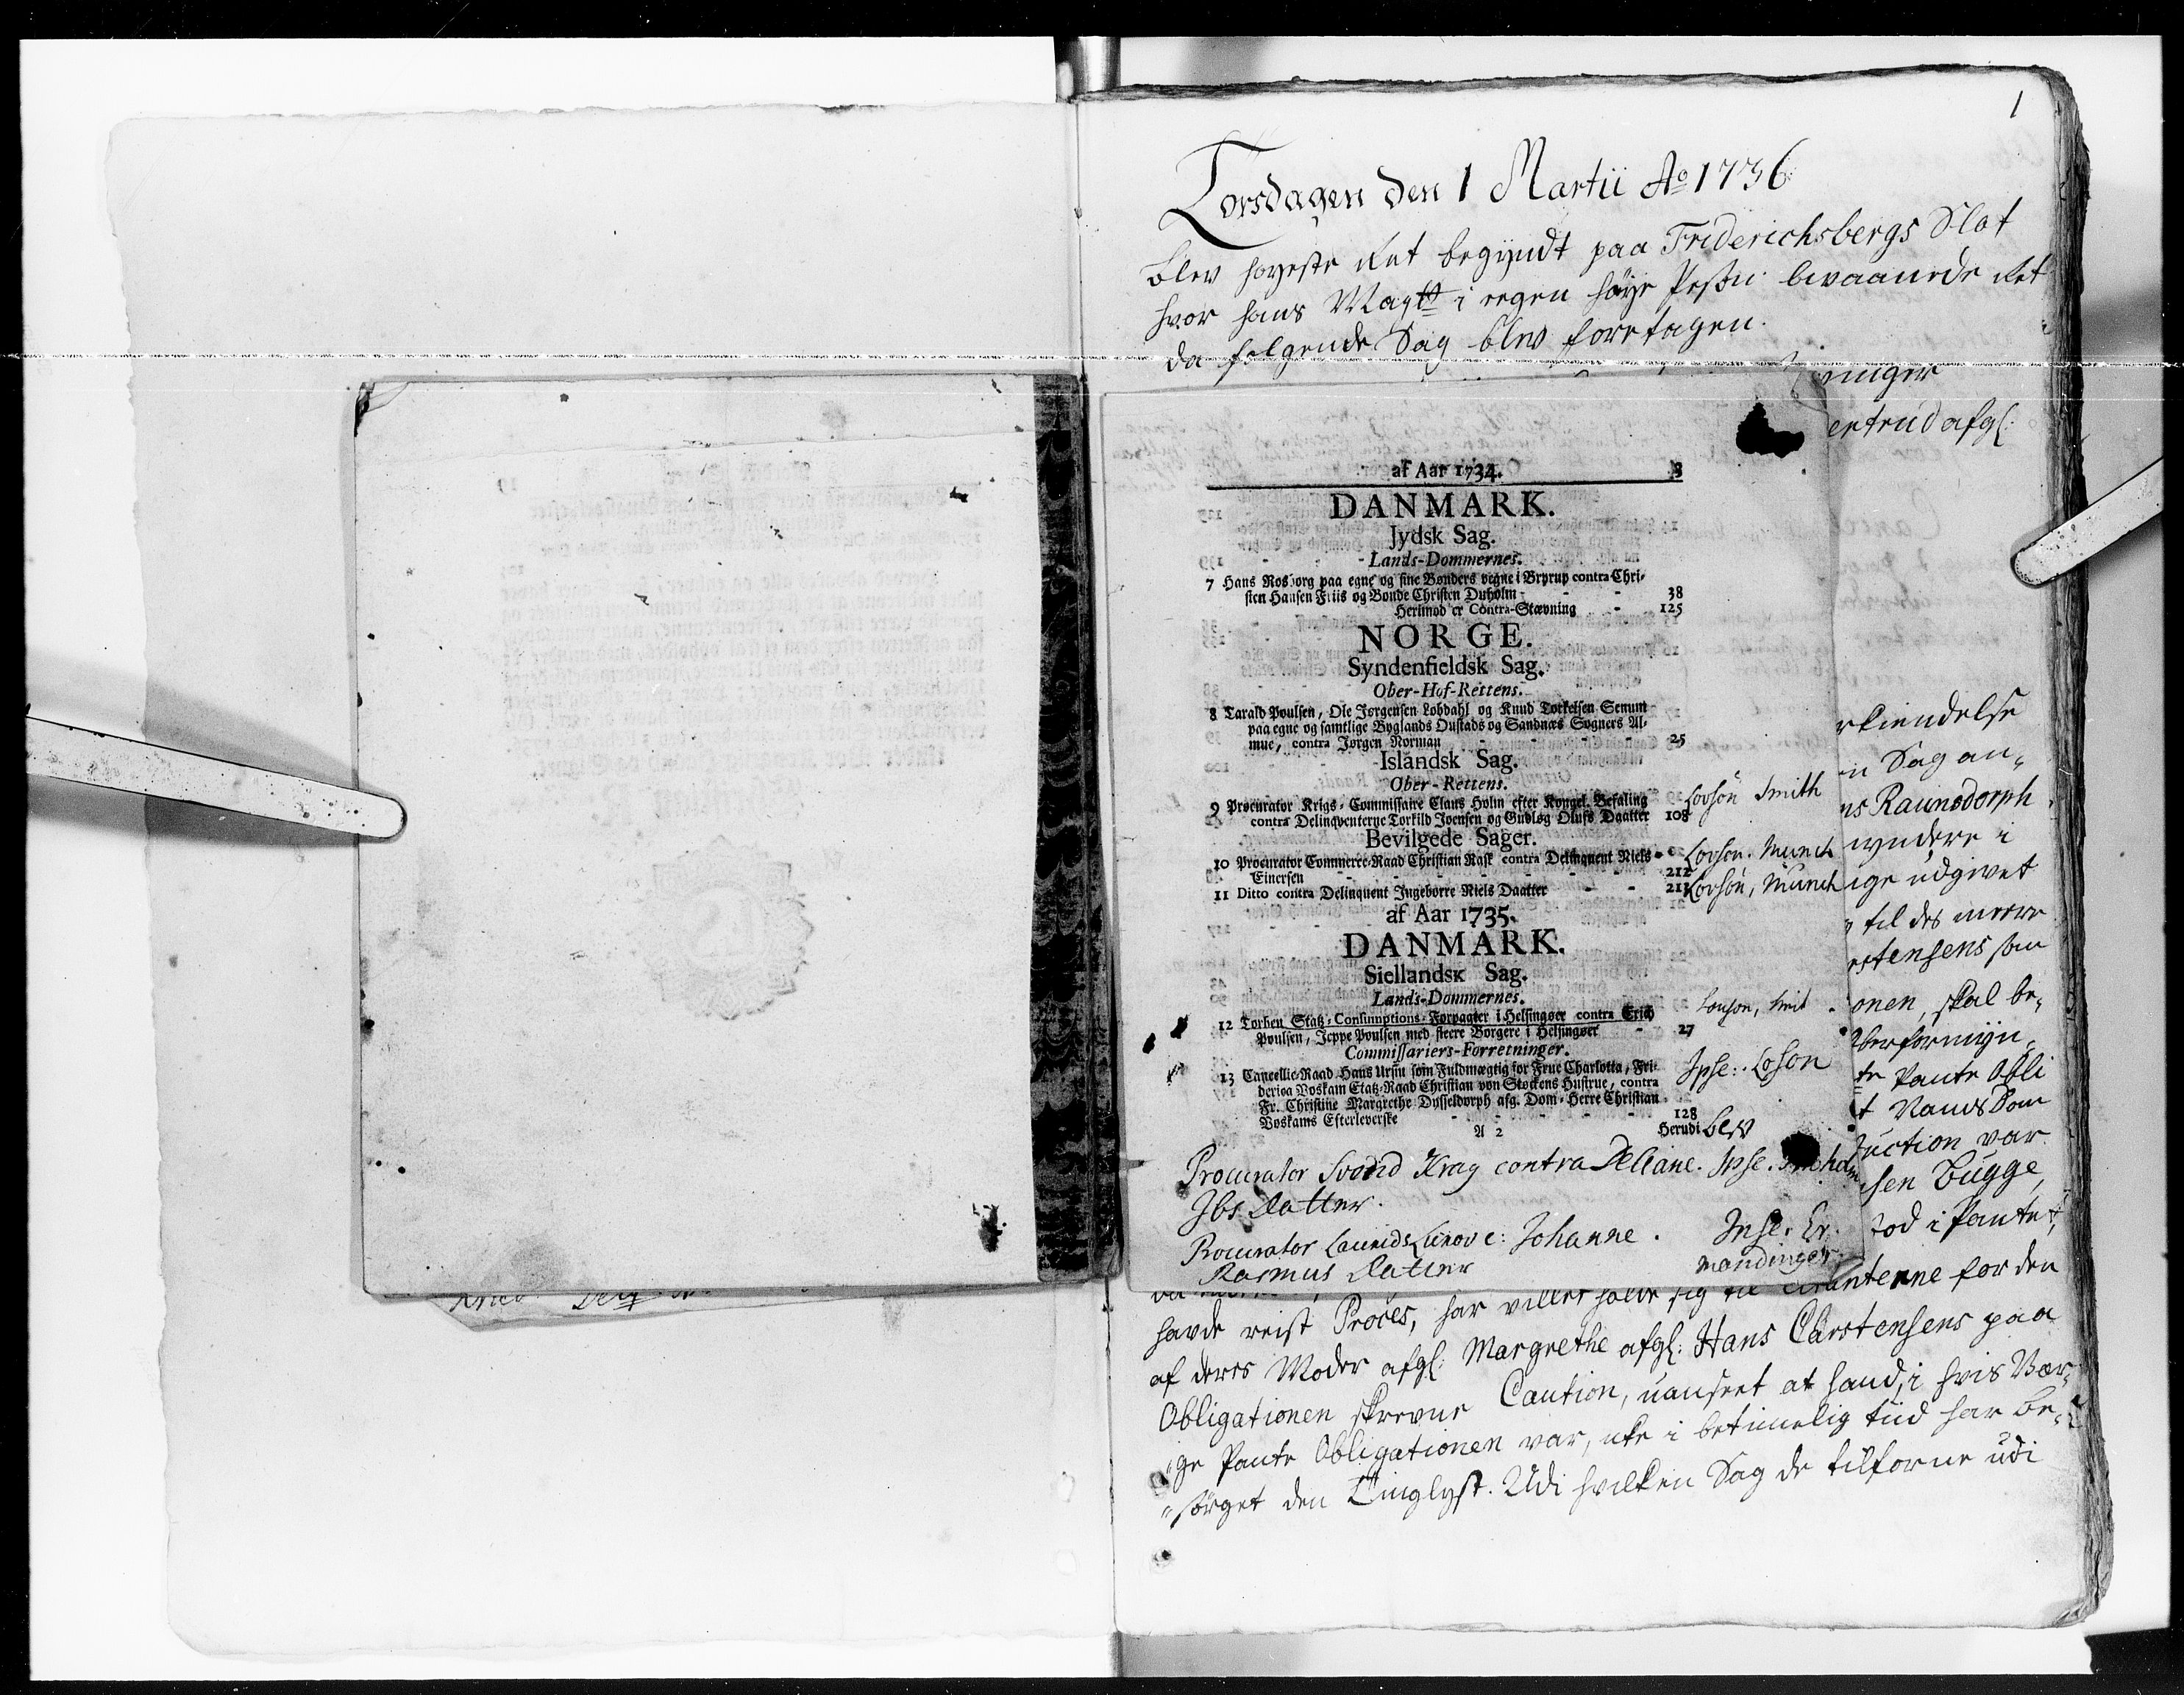 1
Torsdagen den 1 Martii Ao 1736
blev høyeste Ret begyndt paa Friderichsbergs Slot
hvor hans Maytt i egen høye bevaanede Ret
da følgende Sag blev foretagen.
ertrud afgl:
af Aar 1734. 3
DANMARK.
Jydsk Sag.
Lands-Dommernes.
7 Hans Rosborg paa egne og sine Bønders vegne i Bryrup contra Chri-
sten Hansen Friis og Bonde Christen Duholm - - - 38
Herimod er Contra-Stævning - 125
NORGE.
Syndenfieldsk Sag.
Ober-Hof-Rettens.
8 Tarald Poulsen, Ole Jørgensen Lobdahl og Knud Torkelsen Senum
paa egne og samtlige Byglands Oustads og Sandnæs Sogners Al-
mue, contra Jørgen Norman - - - 25
Islandsk Sag.
Ober-Rettens.
9 Procurator Krigs-Commissaire Claus Holm efter Kongel. Befaling
contra Delinqventerne Torkild Joensen og Gudløg Olufs Daatter 108
Lovsøn Smith
Bevilgede Sager.
10 Procurator Commerce-Raad Christian Rask contra Delinquent Niels
Einersen - - - 212
Lovson. Munch
11 Ditto contra Delinquent Ingeborre Niels Daatter - - 213
Lovsøn, Munch
af Aar 1735.
DANMARK.
Siellandsk Sag.
Lands-Dommernes.
12 Torben Statz-Consumptions-Forpagter i Helsingøer contra Erich
Poulsen, Jeppe Poulsen med fleere Borgere i Helsingøer - 27
Commissariers-Forretninger.
13 Cancellie-Raad Hans Ursin som Fuldmægtig for Frue Charlotta, Fri-
derica Voskam Etatz-Raad Christian von Støckens Hustrue, contra
Fr. Christine Margrethe Dysseldorph afg. Dom-Herre Christian
Voskams Efterleverske - - - 128
Ipse: Loson
A 2 Herudi blev
Procurator Svend Krag contra Ipse.
Ibs Datter.
Procurator Laurids Lunov c: Johanne.
Rasmus Datter
rkiendelse
n Sag an-
ns Raunsdorph
yndere i
ige udgivet
til des meere
rstensens som
onen, skal be-
berformyn-
te Pante Obli
t Raads Dom
uction var
sen Bugge,
tod i Pantet,
havde reist Proces, har villet holde sig til Citanterne for den
af deres Moder afgl: Margrethe afgl: Hans Carstensens paa
Obligationen skrevne Caution, uanseet at hand, i hvis Vær-
ge Pante Obligationen var, icke i betimelig tiid har be-
sørget den Tinglyst. Udi hvilken Sag de tilforne udi